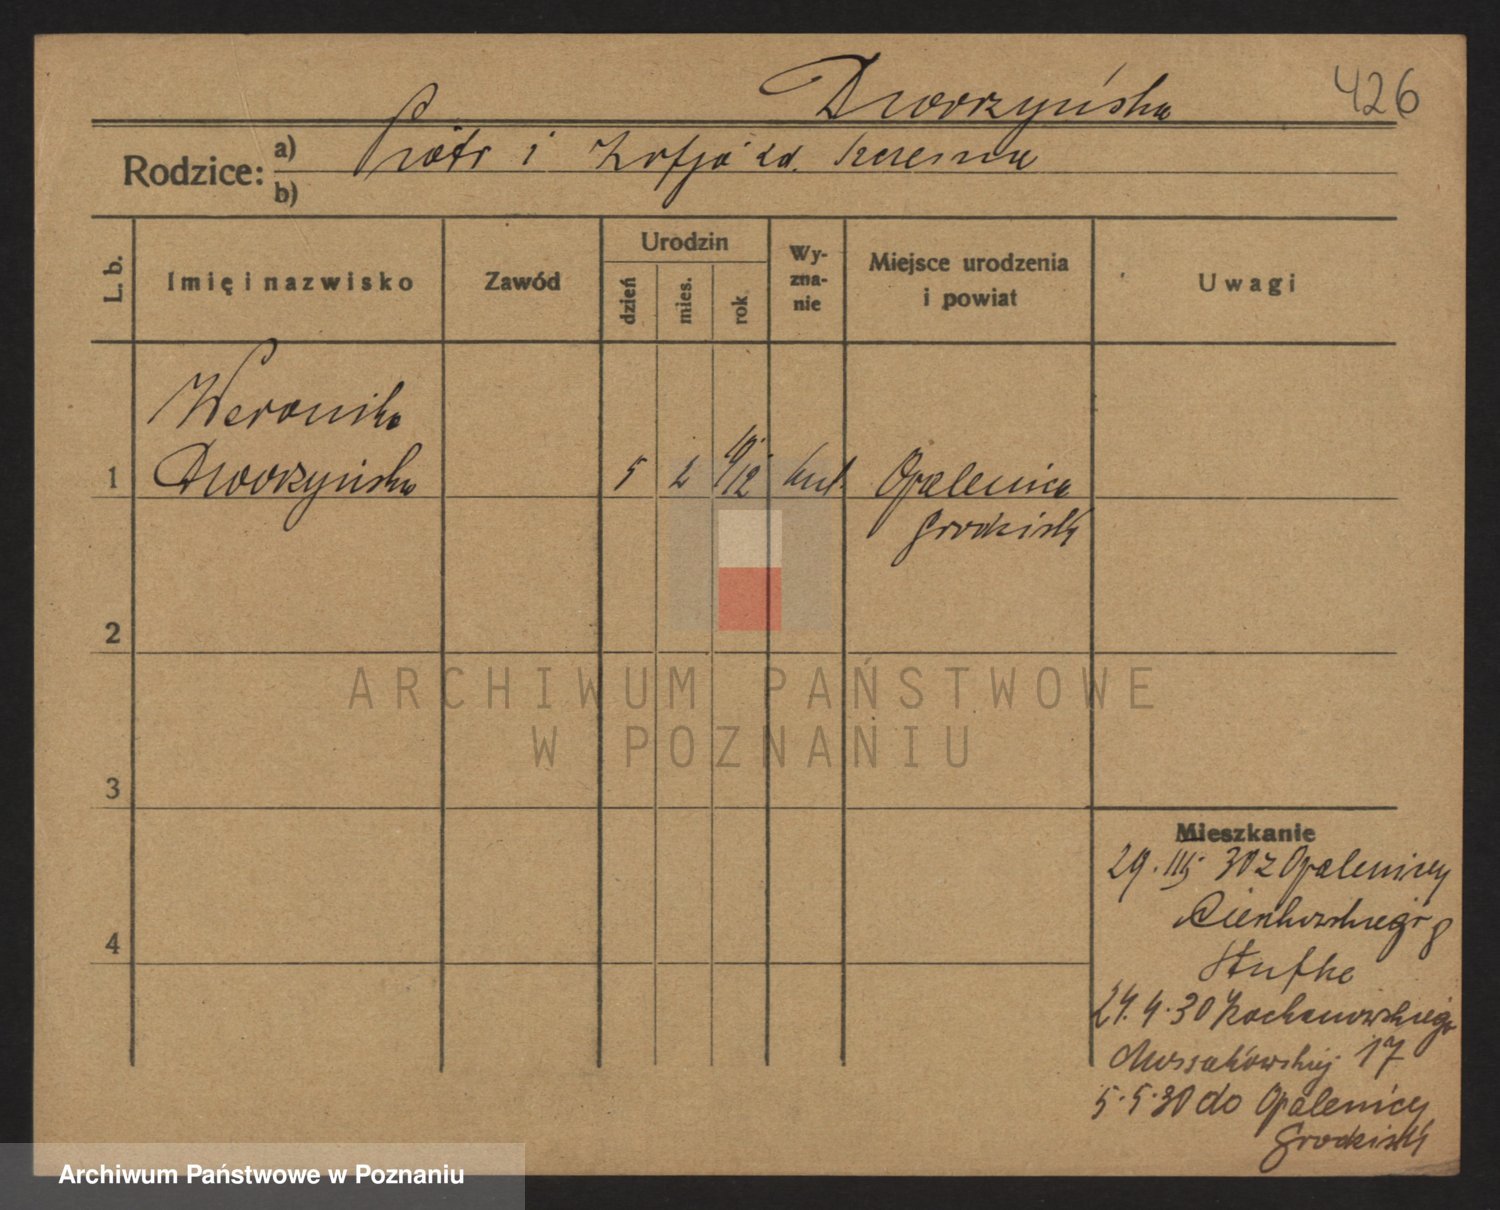 426
Dworzyńska
Rodzice: a) Piotr i Zofja zd.
b)
L. b.
Imię i nazwisko
Zawód
Urodzin
dzień
mies.
rok
Wy-
zna-
nie
Miejsce urodzenia
i powiat
Uwagi
Weronika
1 Dworzyńska 5 2 1912 kat. Opalenica
Grodzisk
2
3
4
Mieszkanie
29. III. 30 z Opalenicy
Sienkowskiego 8
Stufke
24. 4. 30 Kochanowskiego
17
5. 5. 30 do Opalenicy
Grodzisk
ARCHIWUM PAŃSTWOWE
W POZNANIU
Archiwum Państwowe w Poznaniu